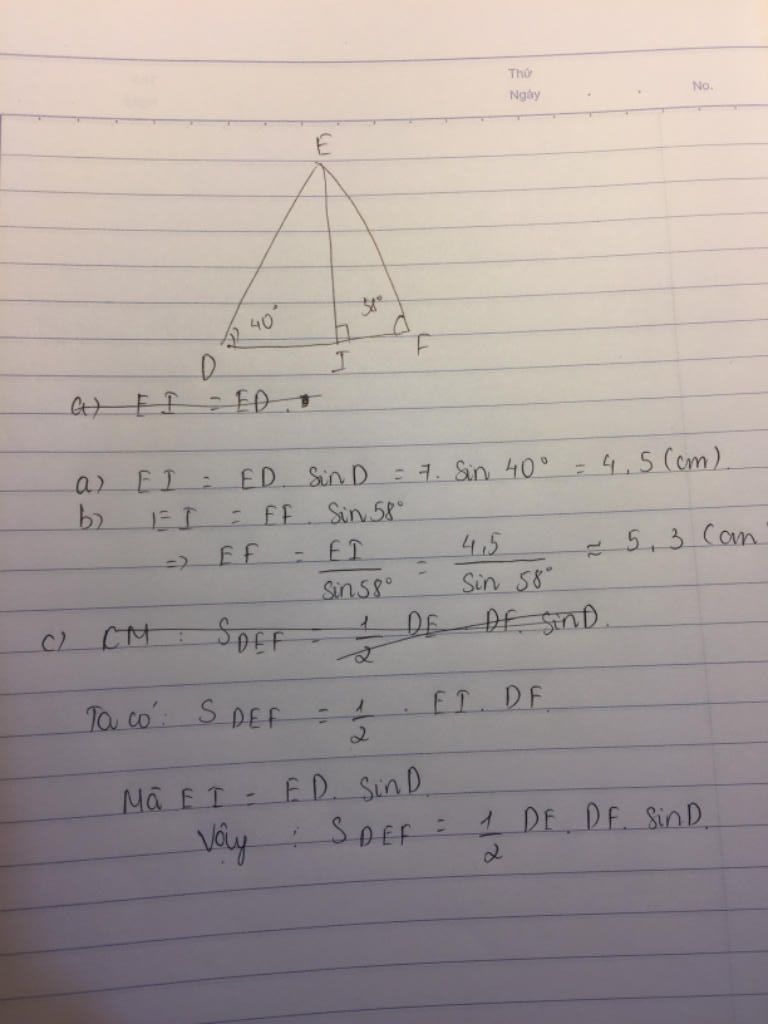 Thứ
Ngày . . No.
E
40° 58°
D I F
a) EI = ED.
a) EI = ED. SinD = 7. Sin 40° = 4,5 (cm).
b) EI = EF. Sin58°
=> EF = EI / Sin58° = 4,5 / Sin 58° ≈ 5,3 (cm
c) CM : S DEF = 1/2 DE DF. SinD.
Ta có: S DEF = 1/2 . EI. DF.
Mà EI = ED. SinD.
Vậy : S DEF = 1/2 DE. DF. SinD.